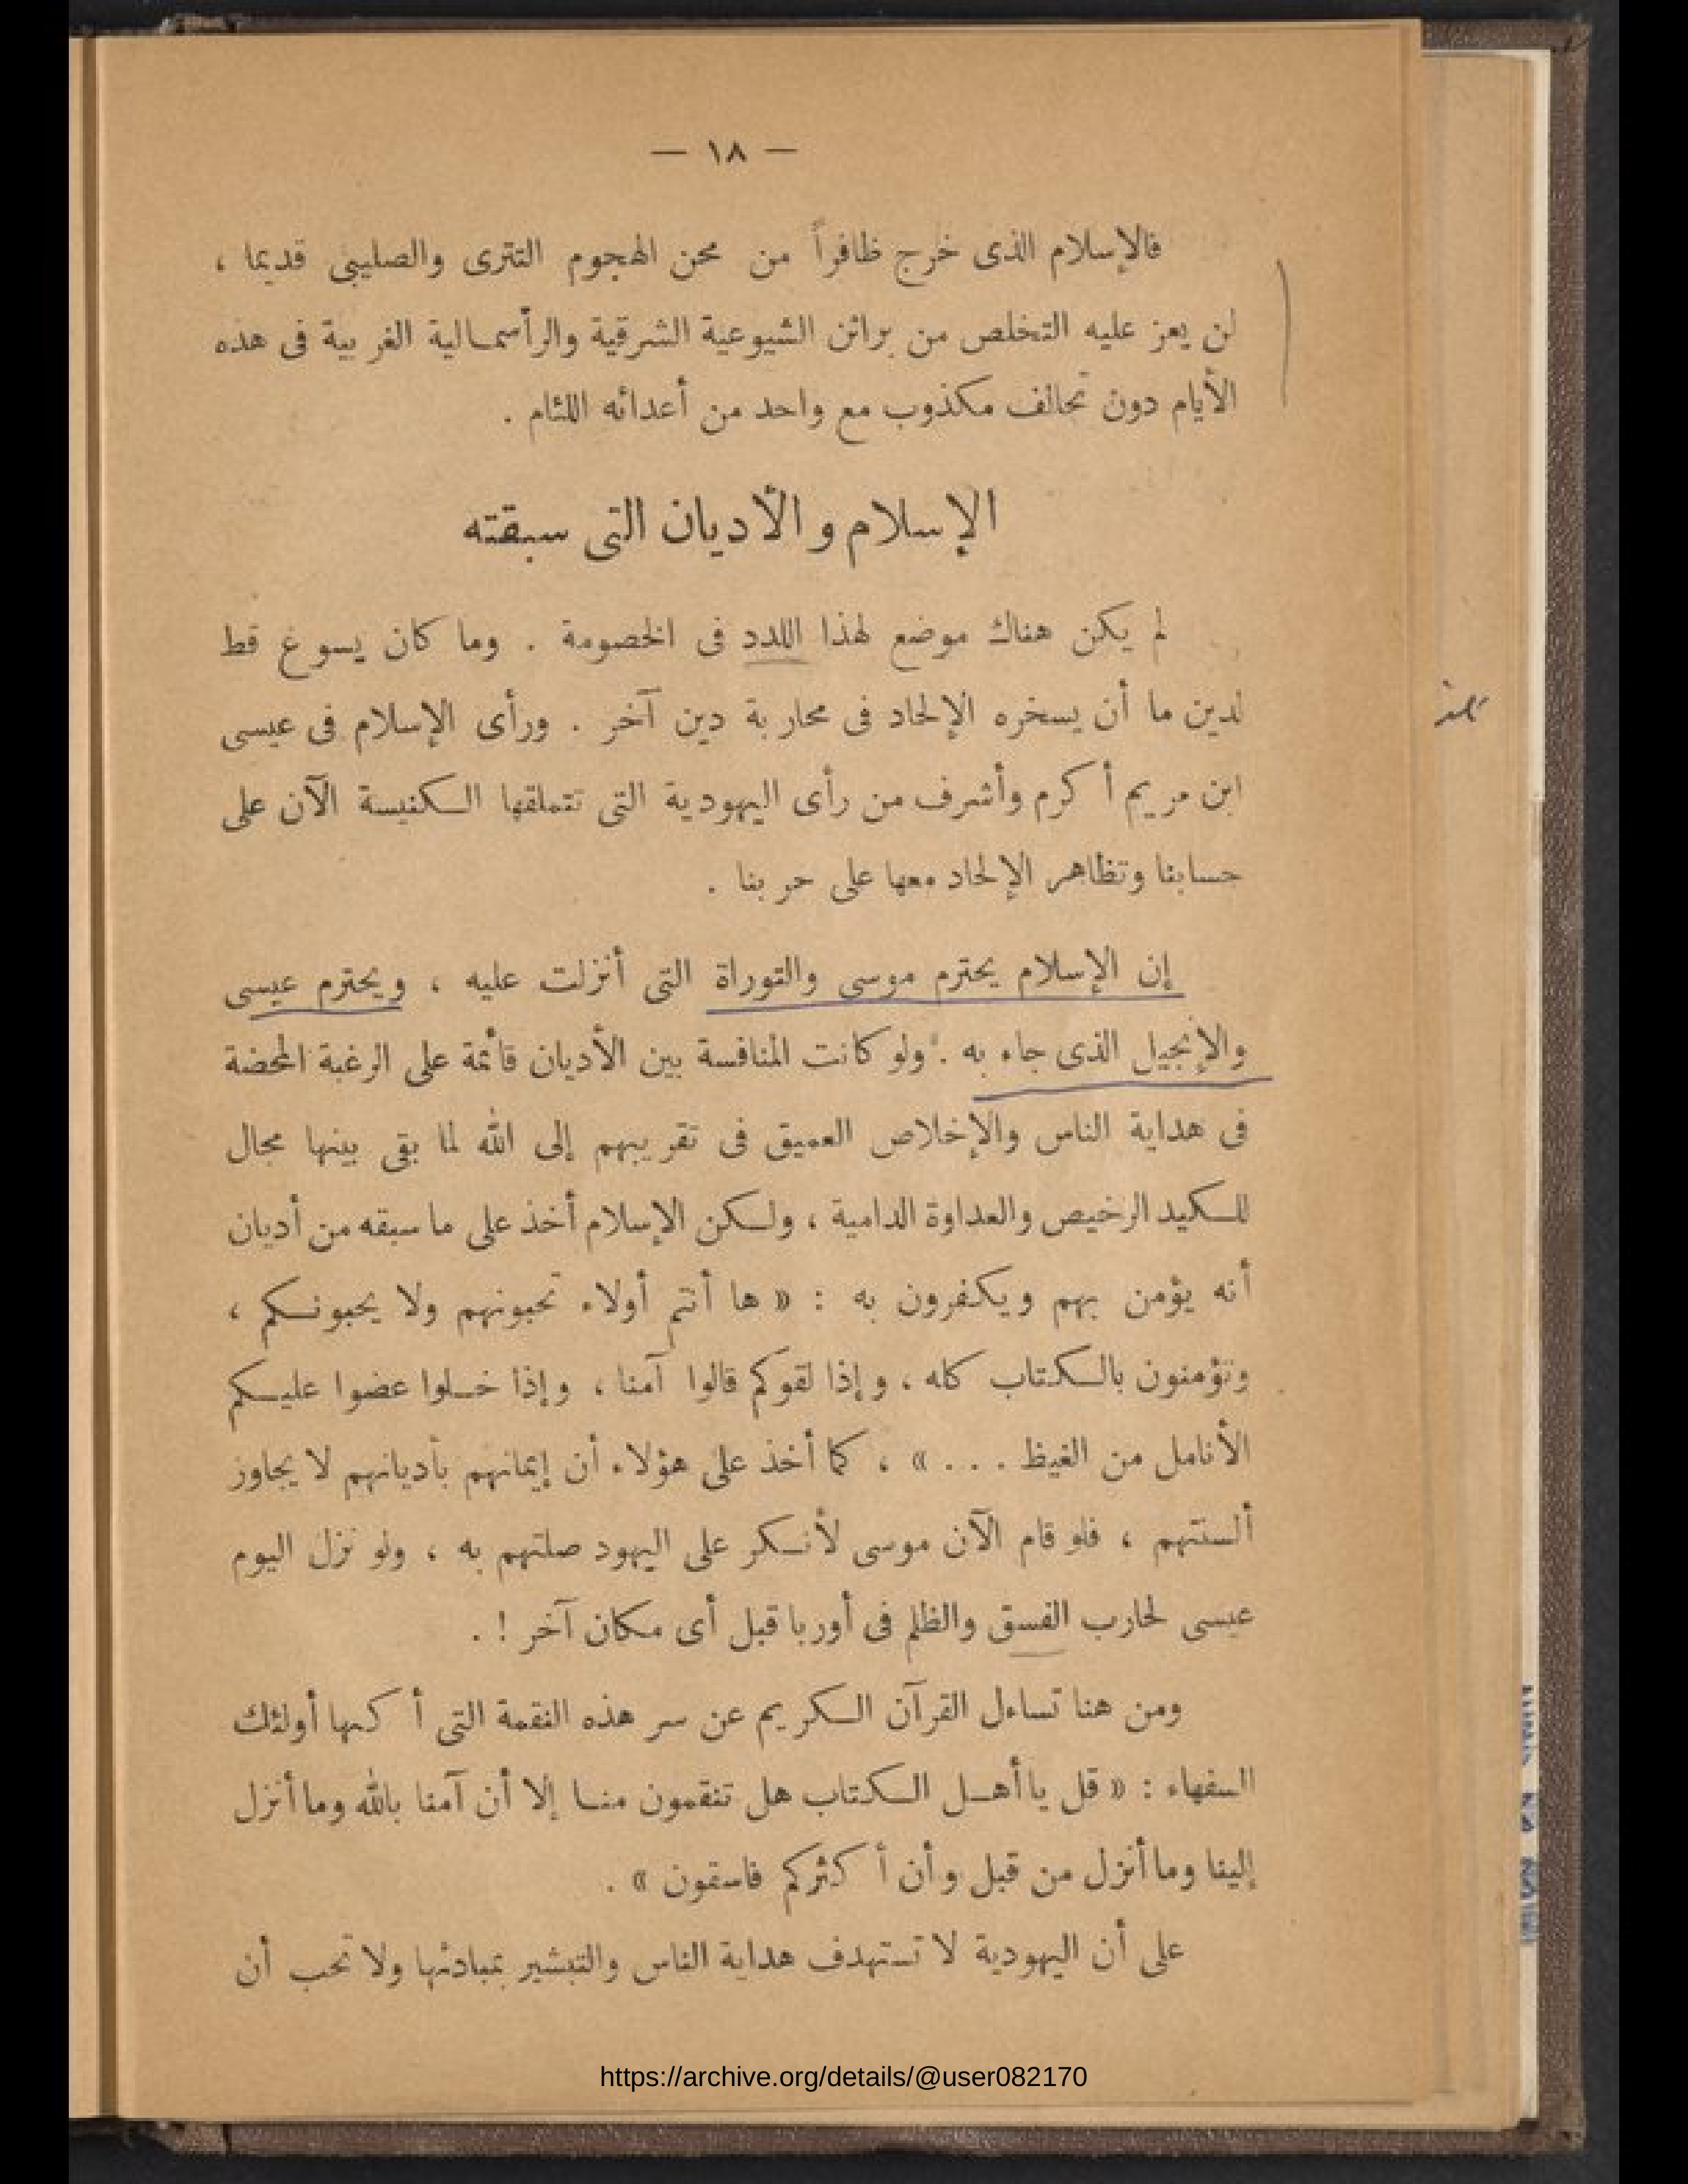 — ١٨ —
فالإسلام الذى خرج ظافراً من محن الهجوم التترى والصليبى قديما ،
لن يعز عليه التخلص من براثن الشيوعية الشرقية والرأسمالية الغربية فى هذه
الأيام دون تحالف مكذوب مع واحد من أعدائه اللئام .
الإسلام والأديان التى سبقته
لم يكن هناك موضع لهذا اللدد فى الخصومة . وما كان يسوغ قط
لدين ما أن يسخره الإلحاد فى محاربة دين آخر . ورأى الإسلام فى عيسى
ابن مريم أكرم وأشرف من رأى اليهودية التى تتملقها الكنيسة الآن على
حسابنا وتظاهر الإلحاد معها على حربنا .
إن الإسلام يحترم موسى والتوراة التى أنزلت عليه ، ويحترم عيسى
والإنجيل الذى جاء به . ولو كانت المنافسة بين الأديان قائمة على الرغبة المحضة
فى هداية الناس والإخلاص العميق فى تقريبهم إلى الله لما بقى بينها مجال
للكيد الرخيص والعداوة الدامية ، ولكن الإسلام أخذ على ما سبقه من أديان
أنه يؤمن بهم ويكفرون به : « ها أنتم أولاء تحبونهم ولا يحبونكم ،
وتؤمنون بالكتاب كله ، وإذا لقوكم قالوا آمنا ، وإذا خلوا عضوا عليكم
الأنامل من الغيظ . . . » ، كما أخذ على هؤلاء أن إيمانهم بأديانهم لا يجاوز
ألسنتهم ، فلو قام الآن موسى لأنكر على اليهود صلتهم به ، ولو نزل اليوم
عيسى لحارب الفسق والظلم فى أوربا قبل أى مكان آخر ! .
ومن هنا تساءل القرآن الكريم عن سر هذه النقمة التى أكنها أولئك
السفهاء : « قل يا أهل الكتاب هل تنقمون منا إلا أن آمنا بالله وما أنزل
إلينا وما أنزل من قبل وأن أكثركم فاسقون » .
على أن اليهودية لا تستهدف هداية الناس والتبشير بمبادئها ولا تحب أن
https://archive.org/details/@user082170